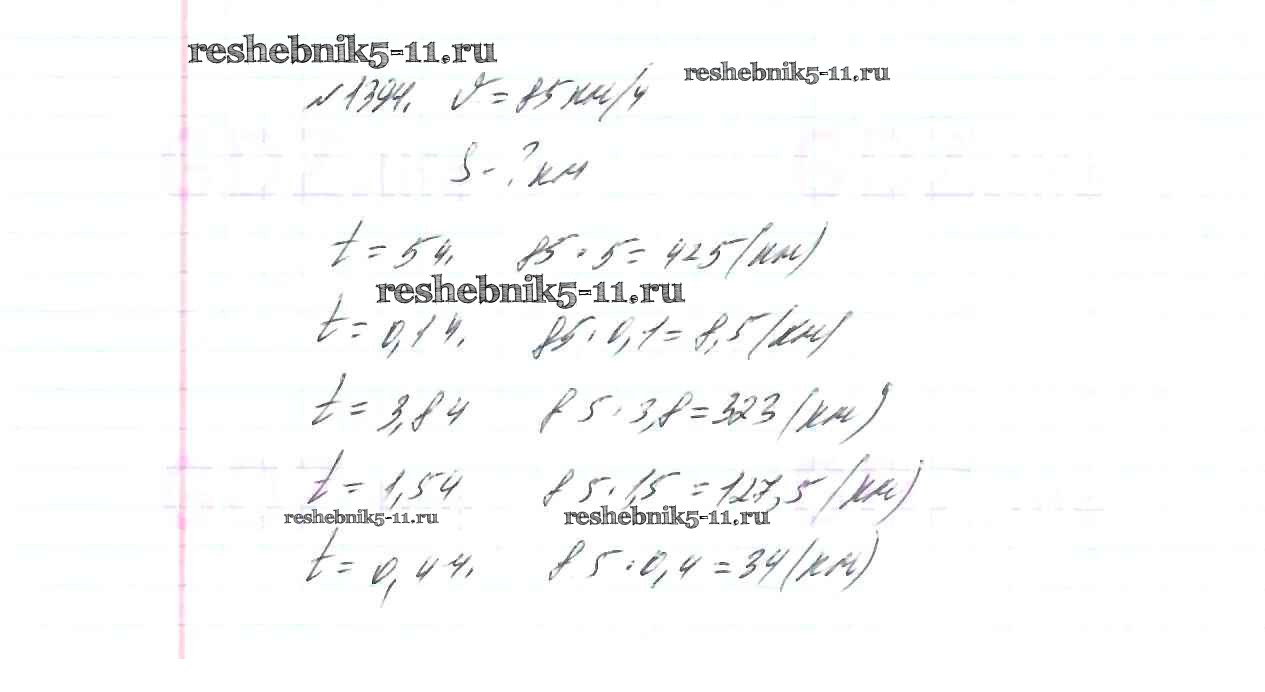 reshebnik5-11.ru
reshebnik5-11.ru
№1394. V = 85 км/ч
S - ? км
t = 5 ч. 85 · 5 = 425 (км)
reshebnik5-11.ru
t = 0,1 ч. 85 · 0,1 = 8,5 (км)
t = 3,8 ч 85 · 3,8 = 323 (км)
t = 1,5 ч 85 · 1,5 = 127,5 (км)
reshebnik5-11.ru reshebnik5-11.ru
t = 0,4 ч. 85 · 0,4 = 34 (км)